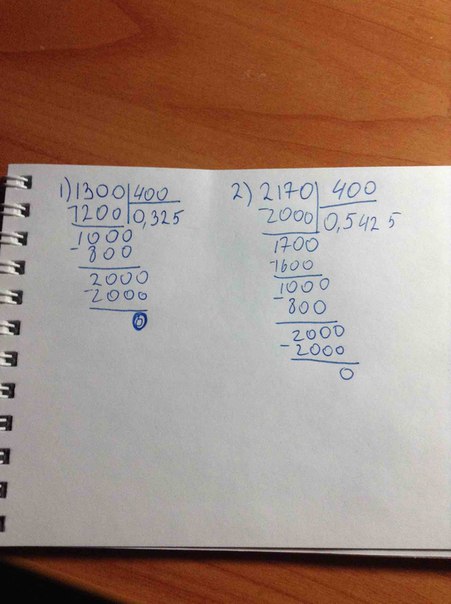 1) 1300 | 400
1200 | 0,325
1000
- 800
2000
- 2000
0
2) 2170 | 400
2000 | 0,5425
1700
- 1600
1000
- 800
2000
- 2000
0